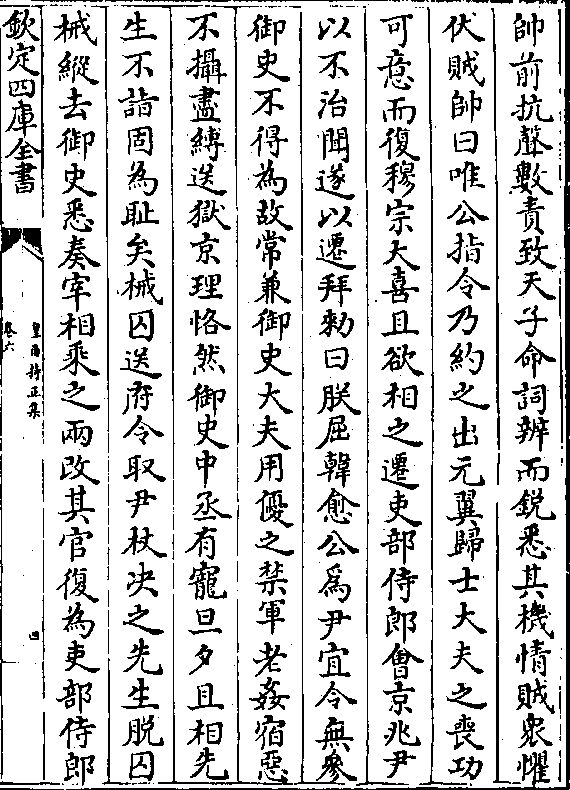 帥前抗聲數責致天子命詞辨而銳悉其機情賊衆懼
伏賊帥曰唯公指令乃約之出元翼歸士大夫之喪功
可意而復穆宗大喜且欲相之遷吏部侍郎會京兆尹
以不治聞遂以遷拜勑曰朕屈韓愈公爲尹宜令無參
御史不得為故常兼御史大夫用優之禁軍老姦宿惡
不攝盡縛送獄京理恪然御史中丞有寵旦夕且相先
生不詣固為耻矣械囚送府令取尹杖决之先生脱囚
械縱去御史悉奏宰相乘之兩改其官復為吏部侍郎
欽定四庫全書
皇甫持正集
卷六
四